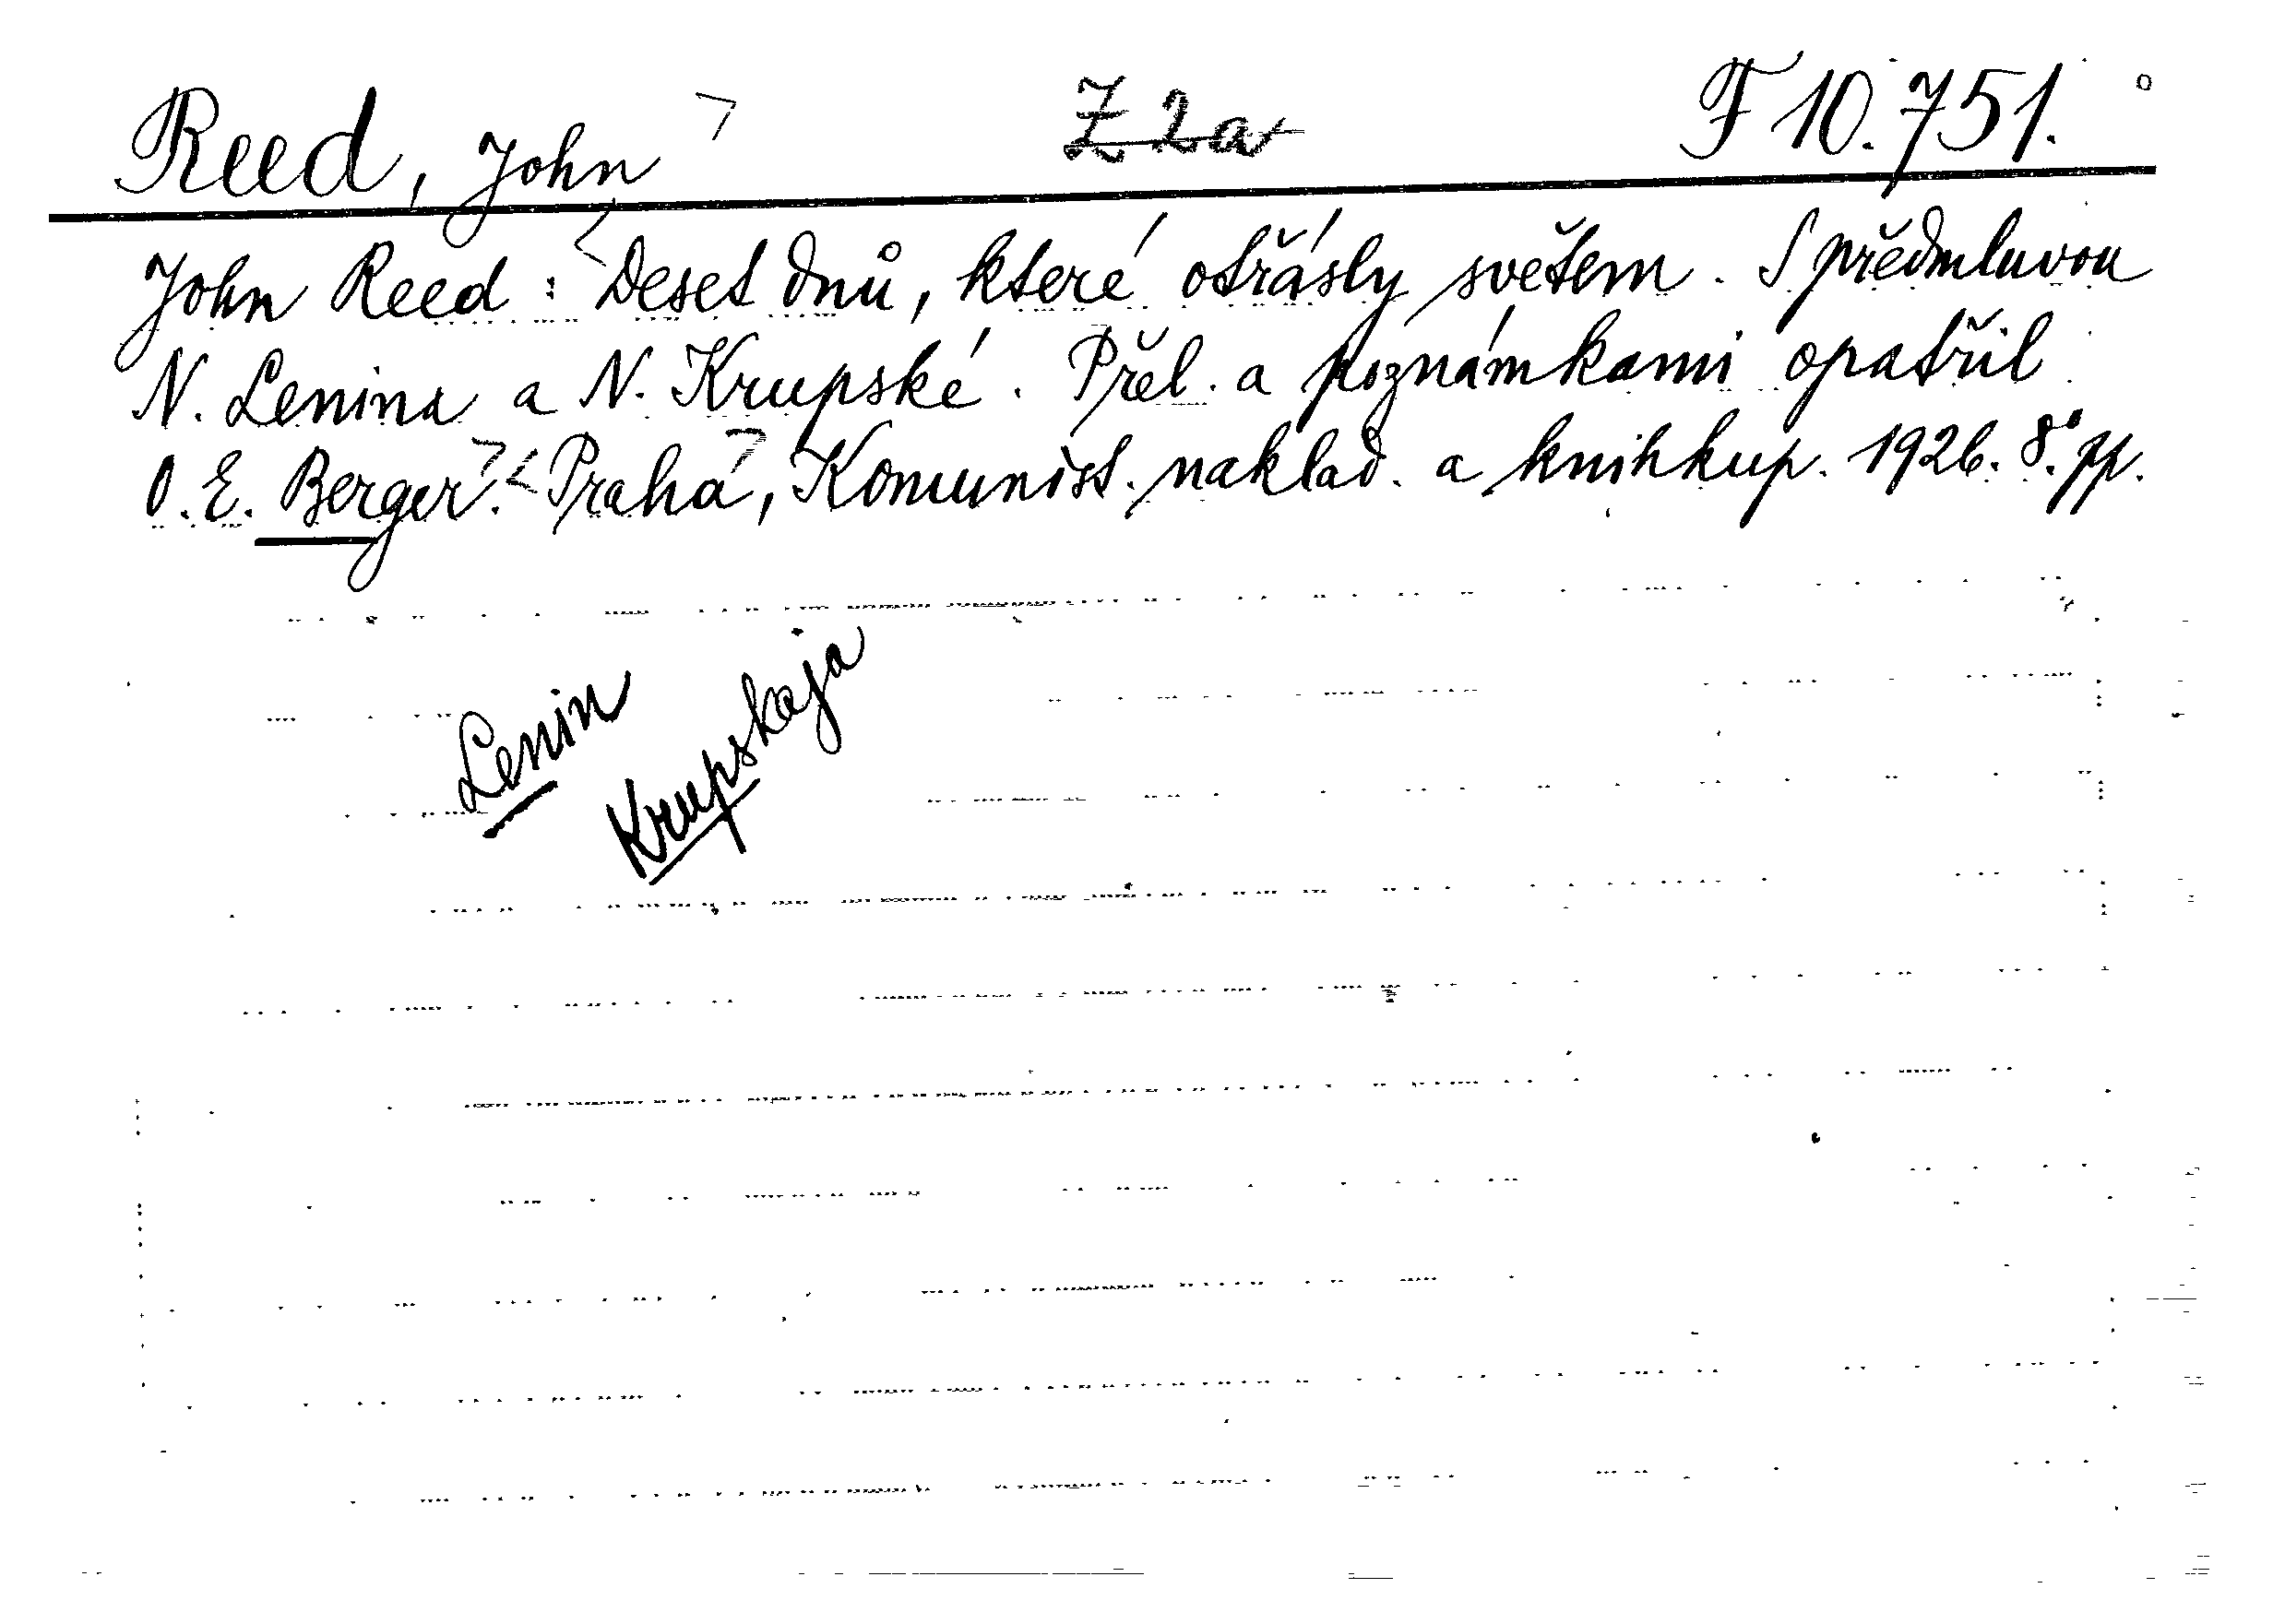 Reed, John Z 2a F 10.751.
John Reed: Deset dnů, které otřásly světem. S předmluvou
N. Lenina a N. Krupské. Přel. a poznámkami opatřil
O. E. Berger. Praha, Komunist. naklad. a knihkup. 1926. 8° pp.
Lenin
Krupskaja